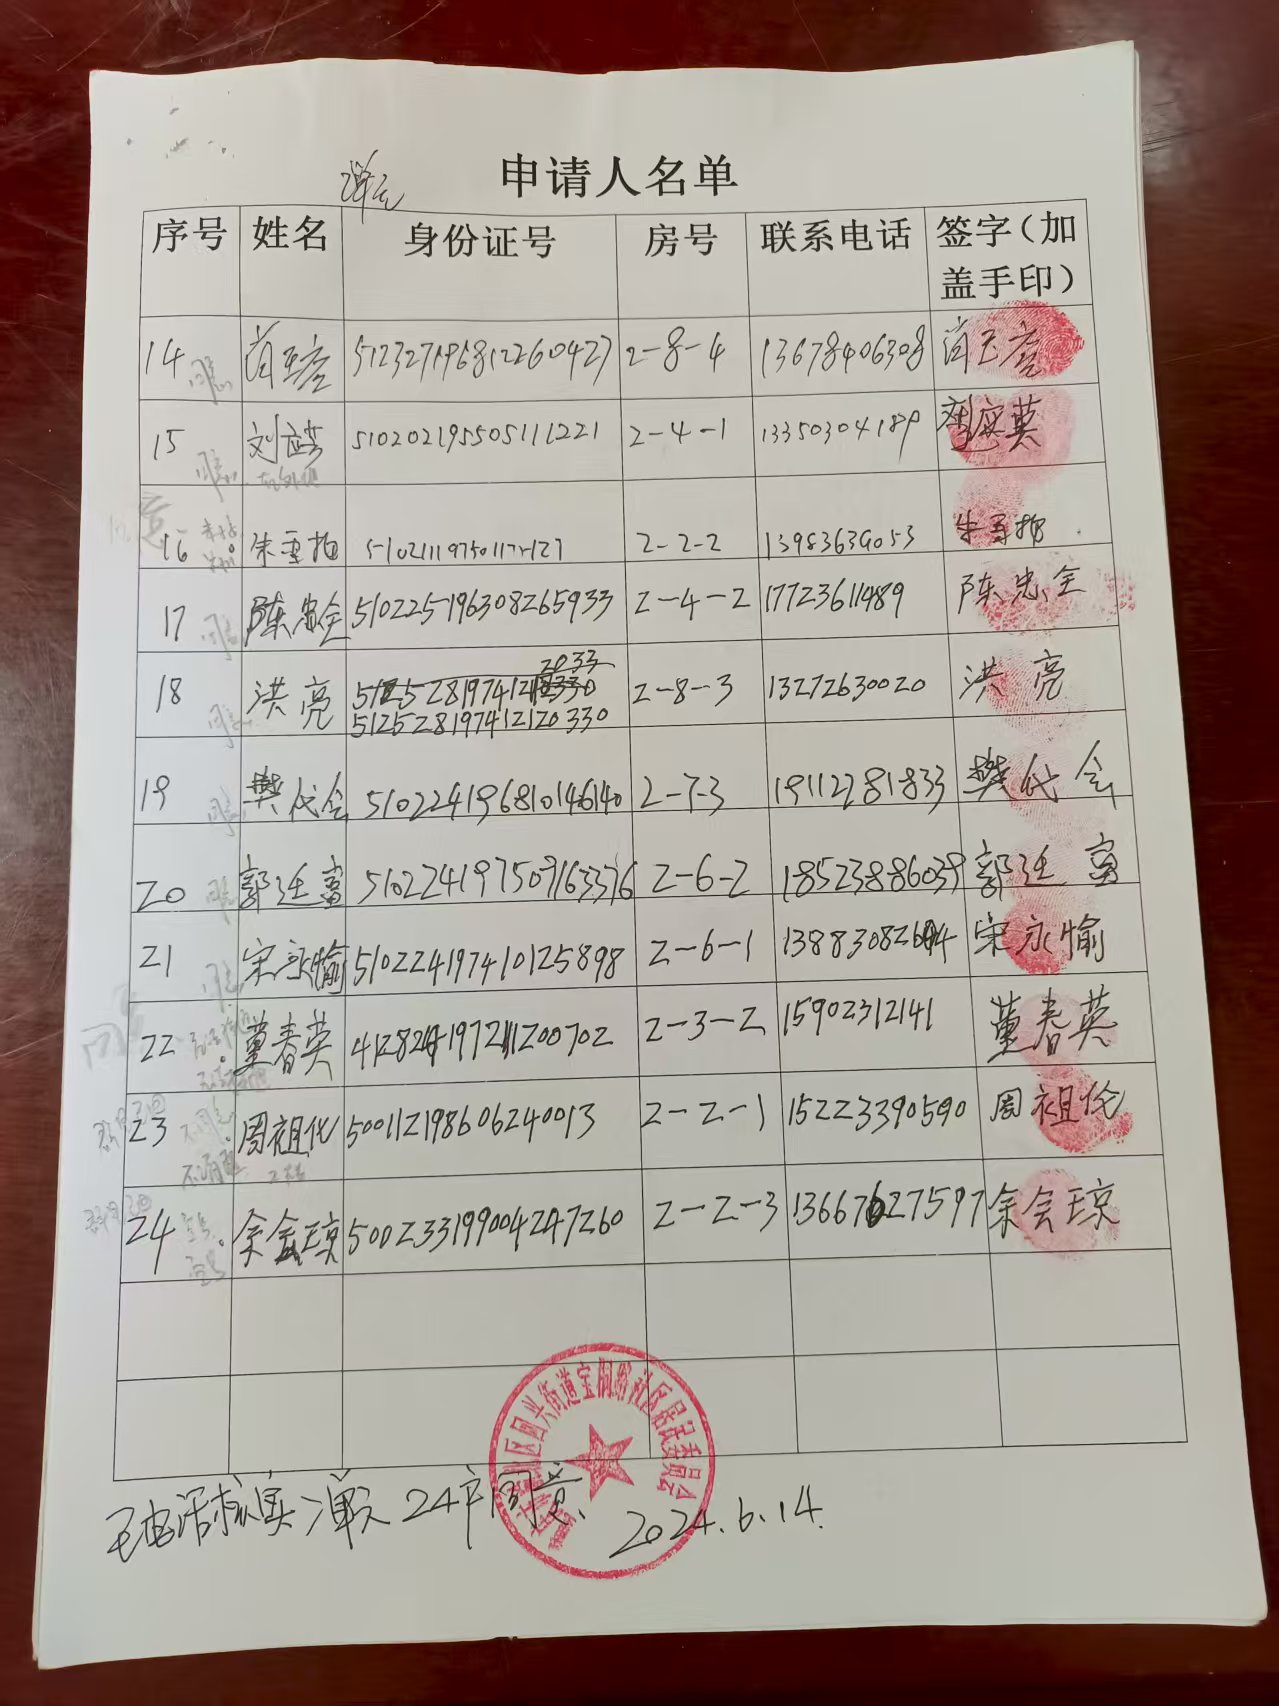 2单元
申请人名单
序号 姓名 身份证号 房号 联系电话 签字（加盖手印）
14 同意 肖玉 512327196812260427 2-8-4 13678406308 肖玉
15 同意 刘 510202195505111221 2-4-1 1335030418 英
16 朱 2-2-2 1398363 053 朱
17 同意 陈忠全 510225196308265933 2-4-2 17723611489 陈忠全
18 同意 洪亮 2033 512528197412120330 2-8-3 13272630020 洪亮
19 同意 樊代会 510224196810146140 2-7-3 19112281833 樊代会
20 同意 郭廷富 510224197509163376 2-6-2 18523886039 郭廷富
21 同意 宋永愉 510224197410125898 2-6-1 宋永愉
同意
22 董春英 2-3-2 15902312141 董春英
23 不同意 周祖伦 500112198606240013 2-2-1 15223390590 周祖伦
24 余会琼 500233199004247260 2-2-3 13667627597 余会琼
街道宝桐路社区居民委员会
电话核实 单元24户同意
2024.6.14